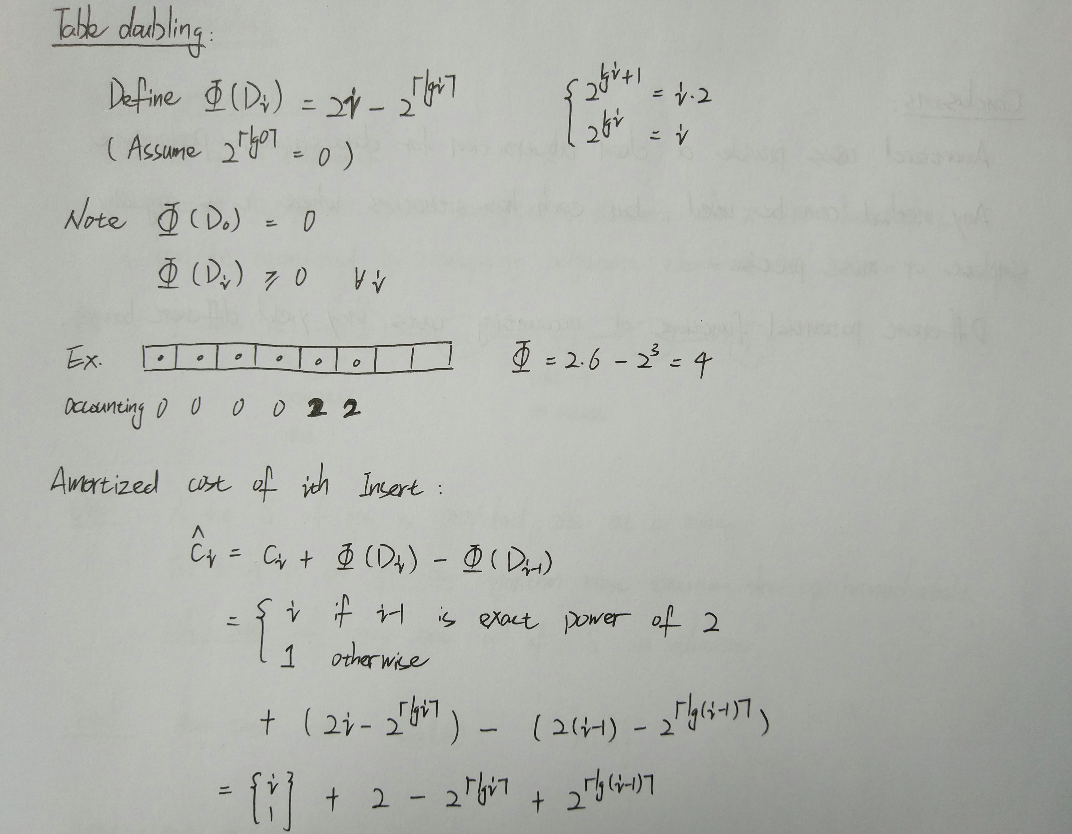 Table doubling:
Define Φ(Dᵢ) = 2i − 2^⌈lg i⌉ { 2^(lg i+1) = i·2
(Assume 2^⌈lg 0⌉ = 0) 2^(lg i) = i
Note Φ(D₀) = 0
Φ(Dᵢ) ⩾ 0 ∀i
Ex. Φ = 2·6 − 2³ = 4
accounting 0 0 0 0 2 2
Amortized cost of ith Insert:
ĉᵢ = Cᵢ + Φ(Dᵢ) − Φ(Dᵢ₋₁)
= { i if i-1 is exact power of 2
1 otherwise
+ (2i − 2^⌈lg i⌉) − (2(i-1) − 2^⌈lg(i-1)⌉)
= { i 1 } + 2 − 2^⌈lg i⌉ + 2^⌈lg(i-1)⌉